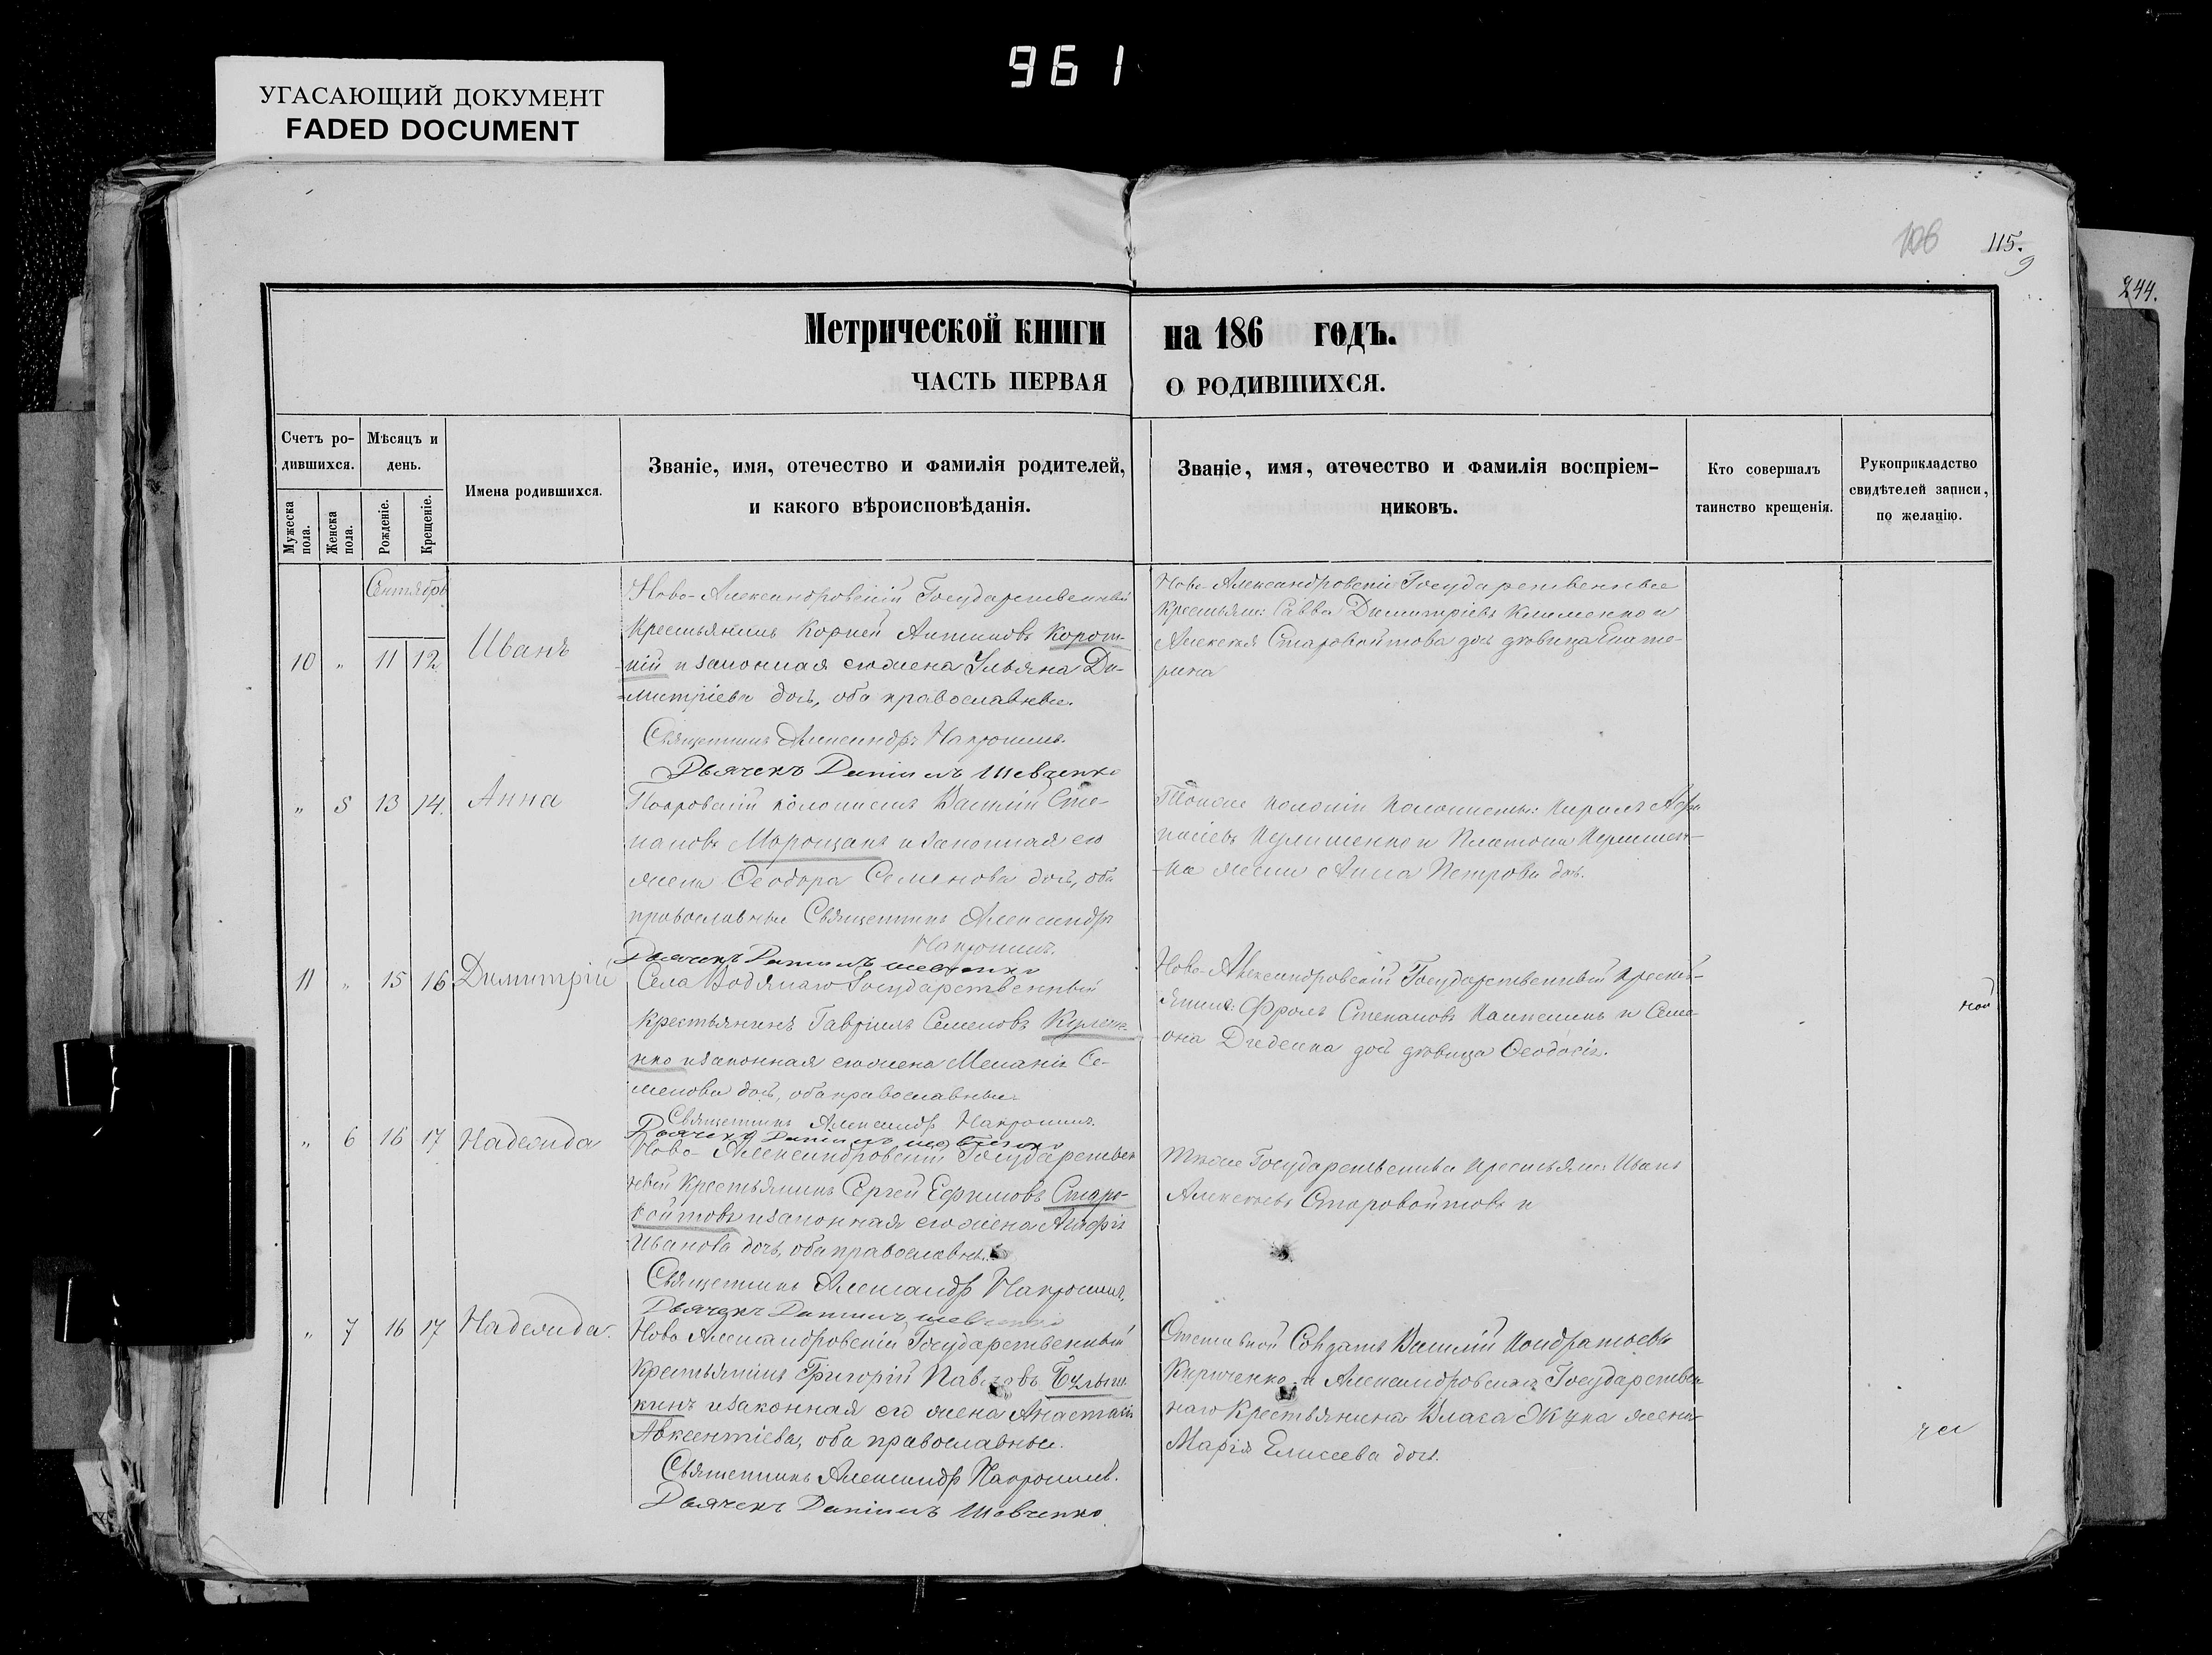 961
УГАСАЮЩИЙ ДОКУМЕНТ
FADED DOCUMENT
106 115.
9
244.
Метрической книги на 186 годъ.
ЧАСТЬ ПЕРВАЯ О РОДИВШИХСЯ.
Счетъ ро-
дившихся.
Мѣсяцъ и
день.
Мужеска
пола.
Женска
пола.
Рожденіе.
Крещеніе.
Имена родившихся.
Званіе, имя, отечество и фамилія родителей,
и какого вѣроисповѣданія.
Званіе, имя, отечество и фамилія воспріем-
никовъ.
Кто совершалъ
таинство крещенія.
Рукоприкладство
свидѣтелей записи,
по желанію.
Сентябрь
10 " 11 12 Иванъ
Ново-Александровскій Государственный
Крестьянинъ Корней Антиповъ Корот-
-кій и законная его жена Ульяна Ди-
-митріева дочь, оба православные.
Священникъ Александръ
Дьячекъ Даніилъ Шевченко
Ново-Александровскіе Государственные
Крестьяне: Савва Димитріевъ Клименко и
Алексея Старовойтова дочь дѣвица Екате-
рина
" 5 13 14. Анна
Покровскій колонистъ Василій Сте-
пановъ Мирощанъ и законная его
жена Ѳеодора Семенова дочь, оба
православные Священникъ Александръ
Дьячекъ Даніилъ Шевченко
Тойже колоніи колонисты: Кирилъ
Кулишенко и Платона Кулишен-
-ка жена Анна Петрова дочь.
11 " 15 16 Димитрій
Села Водянаго Государственный
Крестьянинъ Гавріилъ Семеновъ
-нко и законная его жена Меланія Се-
менова дочь, оба православные.
Священникъ Александръ
Дьячекъ Даніилъ Шевченко
Ново-Александровскій Государственный Кресть-
янинъ: Фролъ Степановъ и Симе-
она дочь дѣвица Ѳеодосія.
" 6 16 17 Надежда
Ново-Александровскій Государствен
ный Крестьянинъ Сергей Ефимовъ Старо-
войтовъ и законная его жена Агафія
Иванова дочь, оба православн.
Священникъ Александръ
Дьячекъ Даніилъ Шевченко
Тѣже Государственные Крестьяне: Иванъ
Алексеевъ Старовойтовъ и
" 7 16 17 Надежда.
Ново Александровскій Государственный
Крестьянинъ Григорій Павловъ Булыш-
кинъ и законная его жена Анастасія
Авксентіева, оба православные.
Священникъ Александръ
Дьячекъ Даніилъ Шевченко
Отставной Солдатъ Василій Кондратьевъ
Кириченко и Александровскаго Государствен
наго Крестьянина Власа Жука жена
Марія Елисеева дочь.